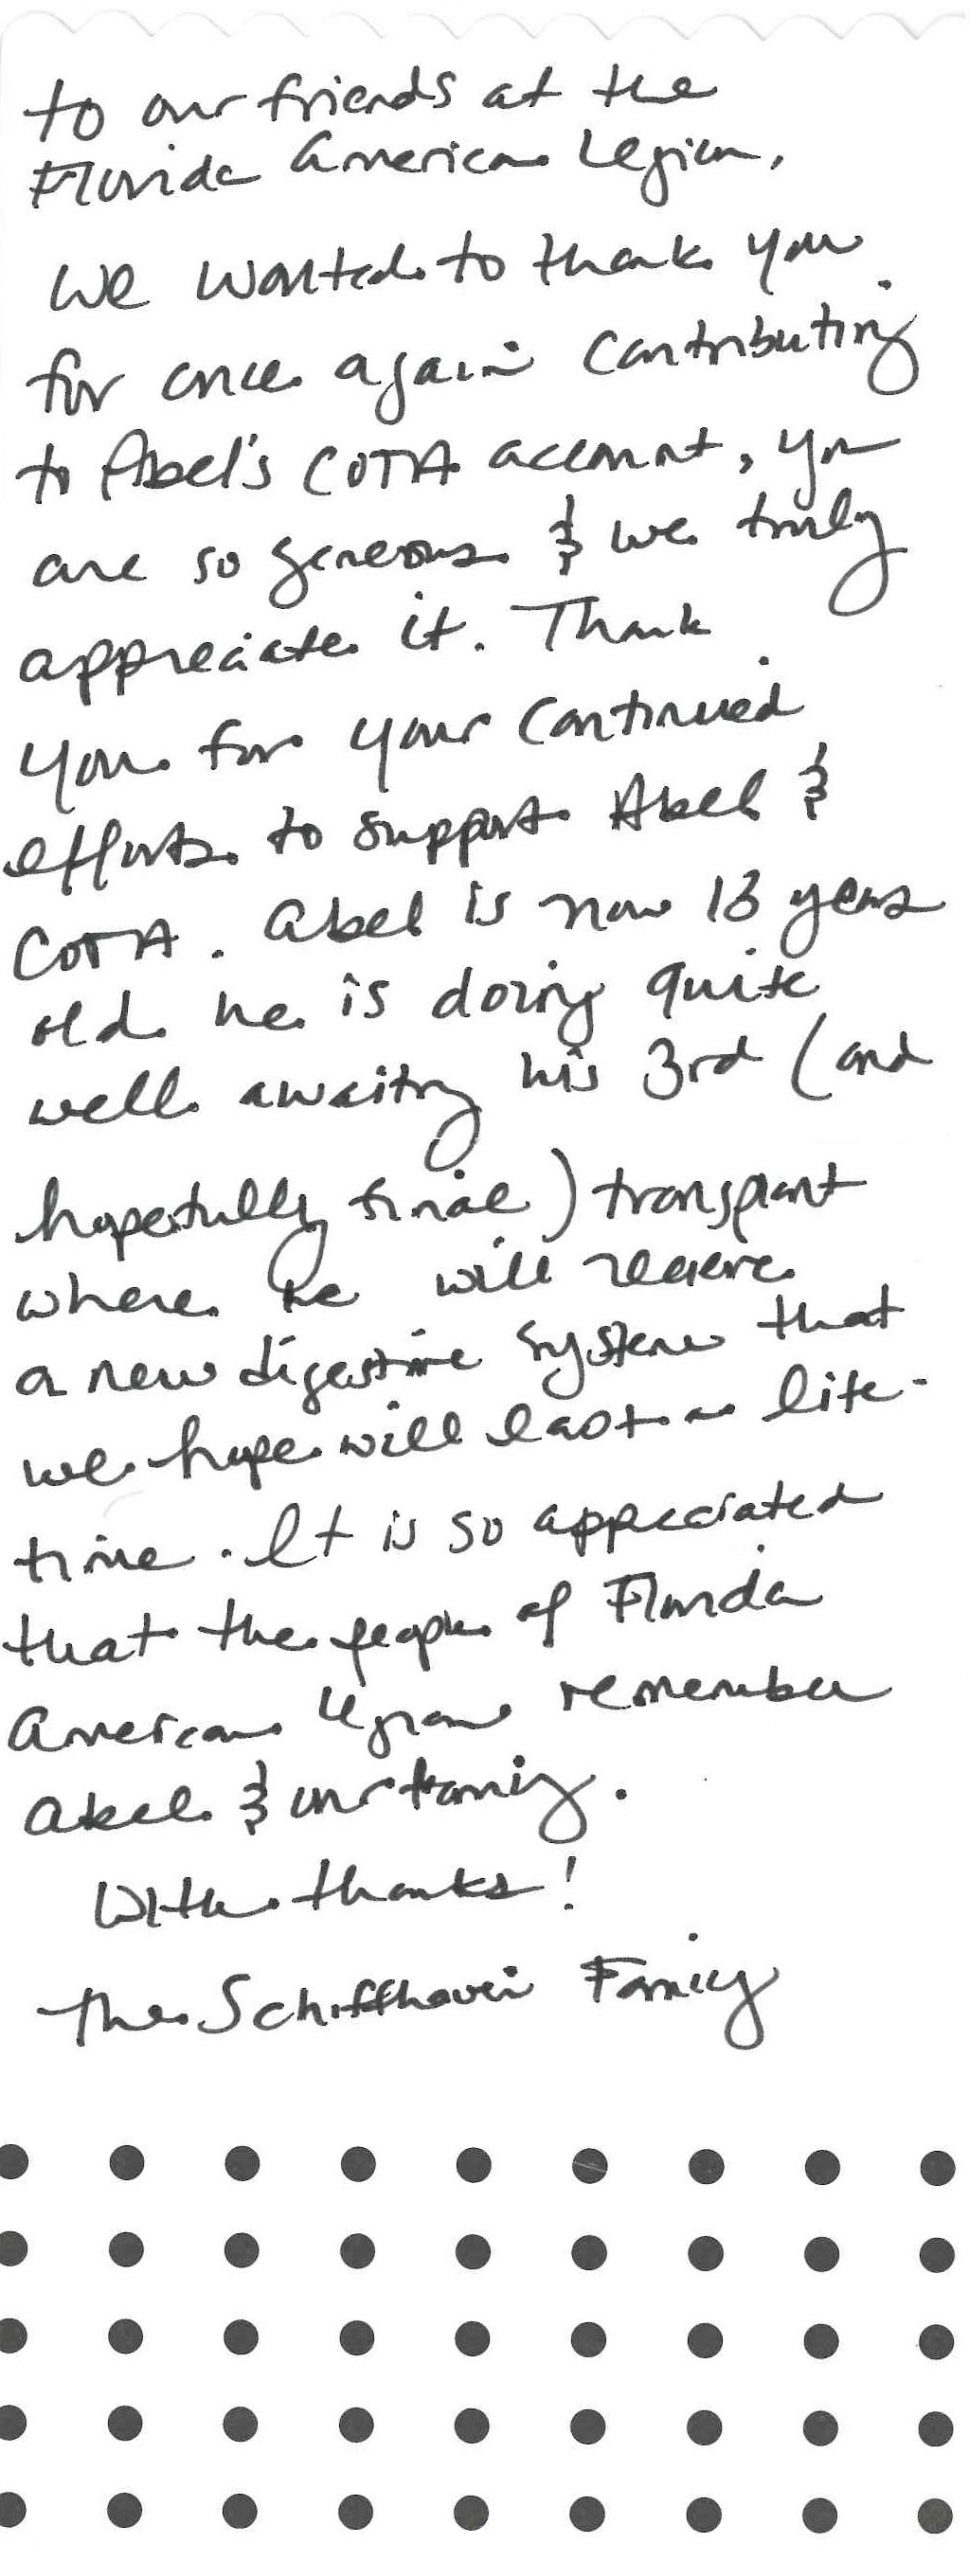 to our friends at the
Florida American Legion,
We wanted to thank you
for once again contributing
to Abel's COTA account, you
are so generous & we truly
appreciate it. Thank
you for your continued
efforts to support Abel &
COTA. Abel is now 13 years
old he is doing quite
well awaiting his 3rd (and
hopefully final) transplant
where he will receive
a new digestive system that
we hope will last a life-
time. It is so appreciated
that the people of Florida
American Legion remember
Abel & our family.
With thanks!
The Family